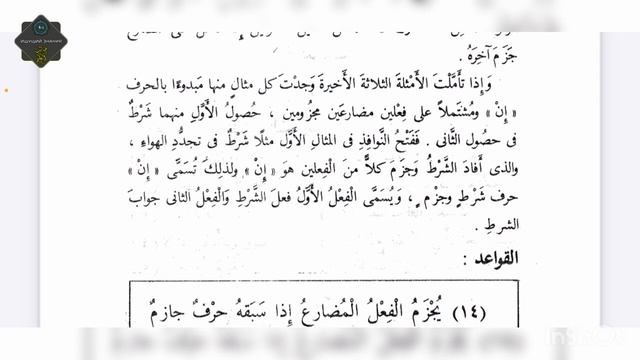 ИЩУЩИЙ ЗНАНИЯ
جَزَمَ آخِرَهُ .
وَإِذا تأَمَّلْتَ الأَمْثلةَ الثلاثةَ الأَخيرةَ وَجدْتَ كل مثالٍ منها مَبدوءًا بالحرف
« إِنْ » ومُشتَملاً على فِعْلين مضارعَين مجزُومين ، حُصولُ الأَوَّلِ منهما شَرْطٌ
فى حصُول الثَّانى . فَفَتْحُ النَّوافِذِ فى المثالِ الأَوَّل مثلًا شَرْطٌ فى تجدُّدِ الهواءِ ،
والذى أَفادَ الشَّرْطُ وَجزَمَ كلاًّ منَ الْفِعلين هوَ « إِنْ » ولذلِكَ تُسَمَّى « إِنْ »
حرف شَرْطٍ وجزْمٍ ، وَيُسَمَّى الْفِعْلُ الأَوَّلُ فعلَ الشَّرْطِ وَالْفِعْلُ الثانى جوابَ
الشرطِ .
القواعد :
(١٤) يُجْزَمُ الْفِعْلُ الْمُضارعُ إِذا سَبَقهُ حرْفٌ جازمٌ
InShot